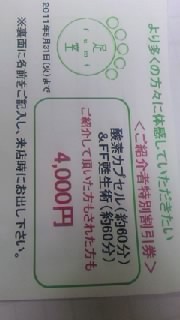 より多くの方々に体感していただきたい
<ご紹介者特別割引券>
酸素カプセル(約60分)
&FF甦生術(約60分)
ご紹介して頂いた方もされた方も
4,000円
2011年5月31日(火)まで
※裏面に名前をご記入し、来店時にお出し下さい。